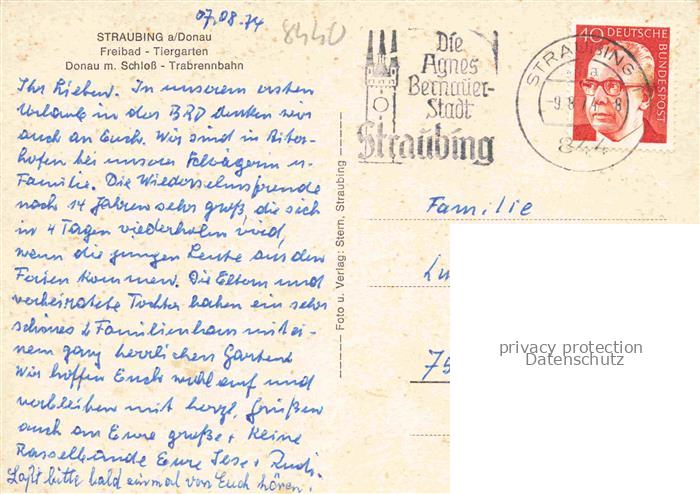 07.08.74
8440
STRAUBING a/Donau
Freibad - Tiergarten
Donau m. Schloß - Trabrennbahn
Ihr Lieben. In unserem ersten
Urlaub in der BRD denken wir
auch an Euch. Wir sind in Aiter-
hofen bei unserer Schwägerin u.
Familie. Die Wiedersehensfreude
nach 14 Jahren sehr groß, die sich
in 4 Tagen wiederholen wird,
wenn die jungen Leute aus den
Ferien kommen. Die Eltern und
verheiratete Tochter haben ein sehr
schönes 2 Familienhaus mit ei-
nem ganz herrlichen Garten.
Wir hoffen Euch wohl auf und
verbleiben mit herzl. Grüßen
auch an Eure große + kleine
Rasselbande Eure Ilse + Rudi.
Laßt bitte bald einmal von Euch hören.
Foto u. Verlag: Stern, Straubing
Die
Agnes
Bernauer-
Stadt
Straubing
STRAUBING
a
-9.8.74-8
844
40 DEUTSCHE
BUNDESPOST
Familie
75
privacy protection
Datenschutz